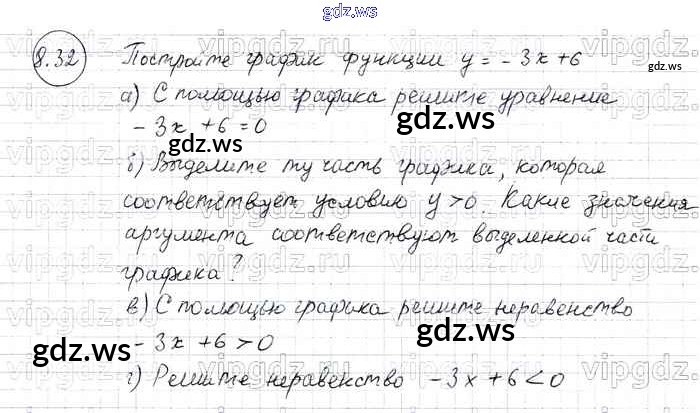 gdz.ws
8.32 Постройте график функции y = - 3x + 6
gdz.ws
а) С помощью графика решите уравнение
- 3x + 6 = 0
gdz.ws
б) Выделите ту часть графика, которая
соответствует условию y > 0. Какие значения
аргумента соответствуют выделенной части
графика?
в) С помощью графика решите неравенство
- 3x + 6 > 0
gdz.ws
gdz.ws
г) Решите неравенство - 3x + 6 < 0
gdz.ws